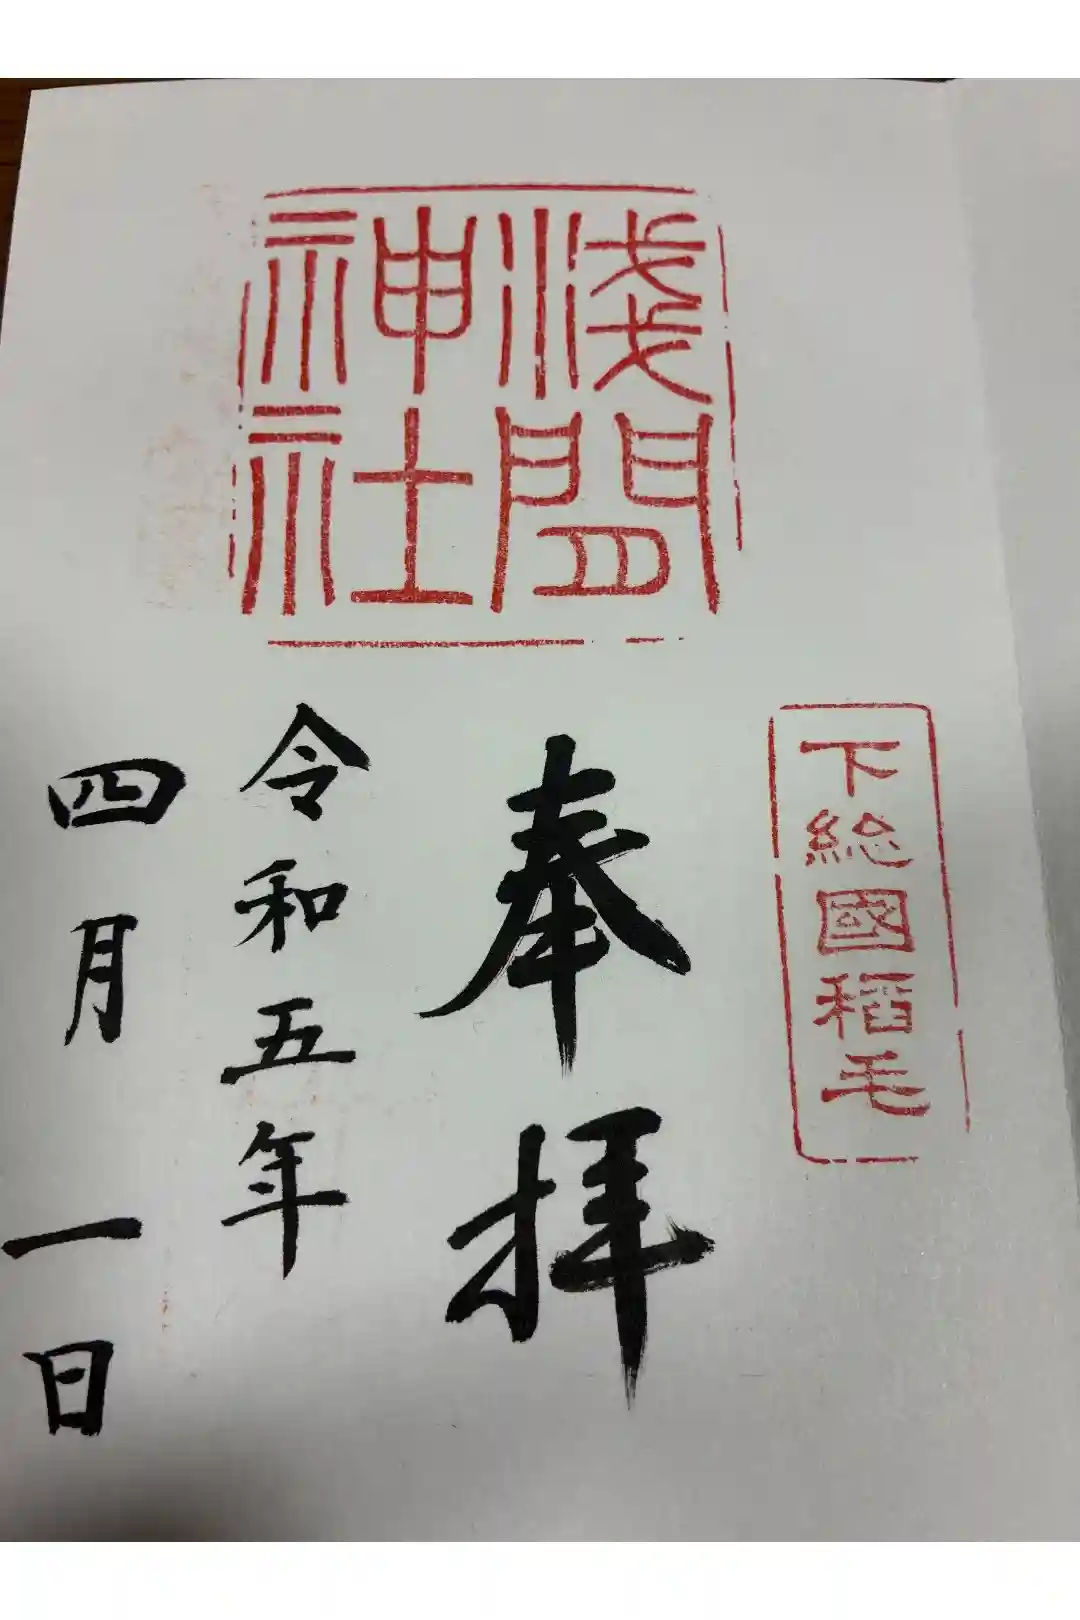 下総國稲毛
淺間
神社
奉拝
令和五年
四月一日